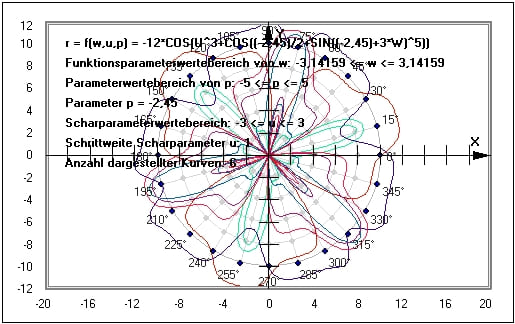 12
10
8
6
4
2
0
-2
-4
-6
-8
-10
-12
r = f(w,u,p) = -12*COS(U^3+COS((-2,45)/2+SIN((-2,45)+3*W)^5))
Funktionsparameterwertebereich von w: -3,14159 <= w <= 3,14159
Parameterwertebereich von p: -5 <= p <= 5
Parameter p = -2,45
Scharparameterwertebereich: -3 <= u <= 3
Schrittweite Scharparameter u: 1
Anzahl dargestellter Kurven: 6
Y
X
45°
30°
15°
345°
330°
315°
300°
285°
270°
255°
240°
225°
210°
195°
-20
-16
-12
-8
-4
0
4
8
12
16
20